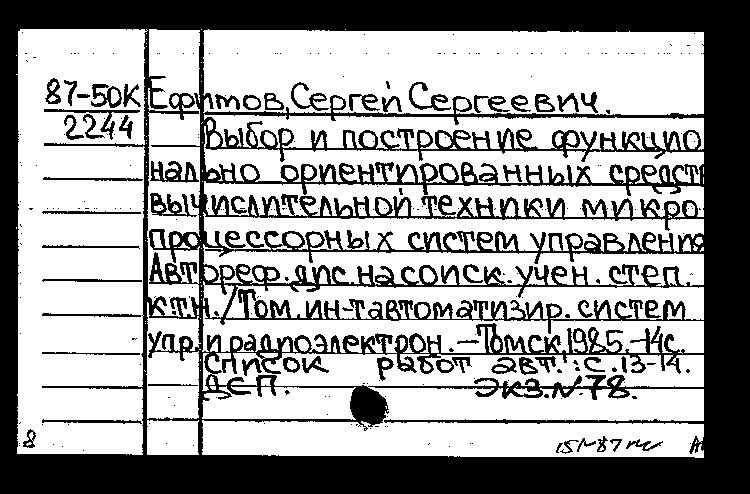 87-50К Ефимов, Сергей Сергеевич.
2244 Выбор и построение функцио
нально ориентированных средств
вычислительной техники микро
процессорных систем управления
Автореф. дис. на соиск. учен. степ.
к.т.н. / Том. ин-т автоматизир. систем
упр. и радиоэлектрон. — Томск 1985. - 14с.
Список работ авт.: с. 13-14.
ДСП. Экз. № 78.
8